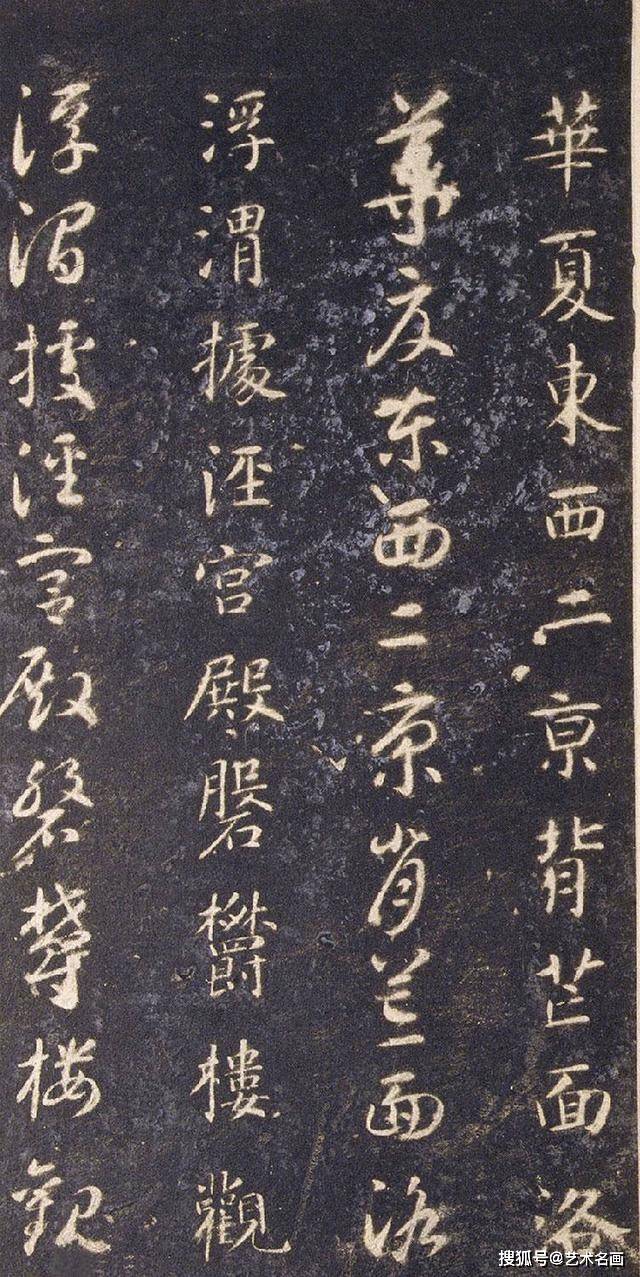 華夏東西二京背芒面洛
華夏東西二京背芒面洛
浮渭據涇宮殿磐欝樓觀
浮渭據涇宮殿磐欝樓觀
搜狐号@艺术名画